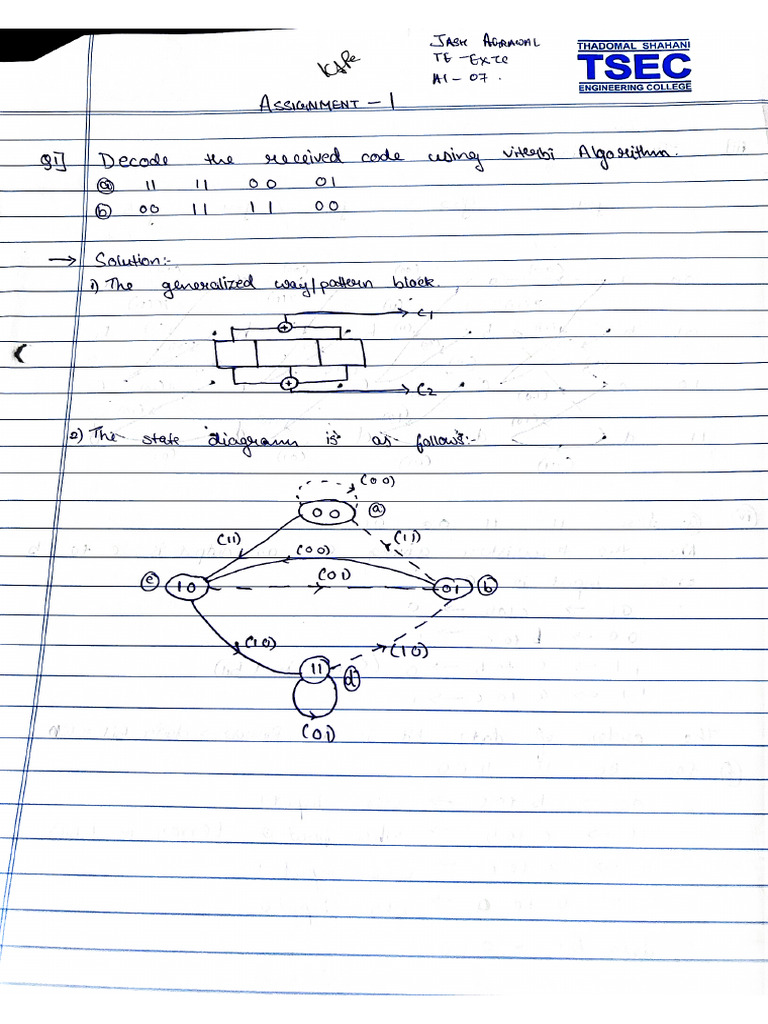 JASH AGRAWAL
TE - EXTC
A1 - 07.
THADOMAL SHAHANI
TSEC
ENGINEERING COLLEGE
ASSIGNMENT - 1
Q1] Decode the received code using viterbi Algorithm.
(a) 11 11 00 01
(b) 00 11 11 00
→ Solution:-
1) The generalized way/pattern block.
C1
+
+
C2
2) The state diagram is as follows:-
(00)
00 (a)
(11) (11)
(00)
(01)
(c) 10 01 (b)
(10) (10)
11 (d)
(01)